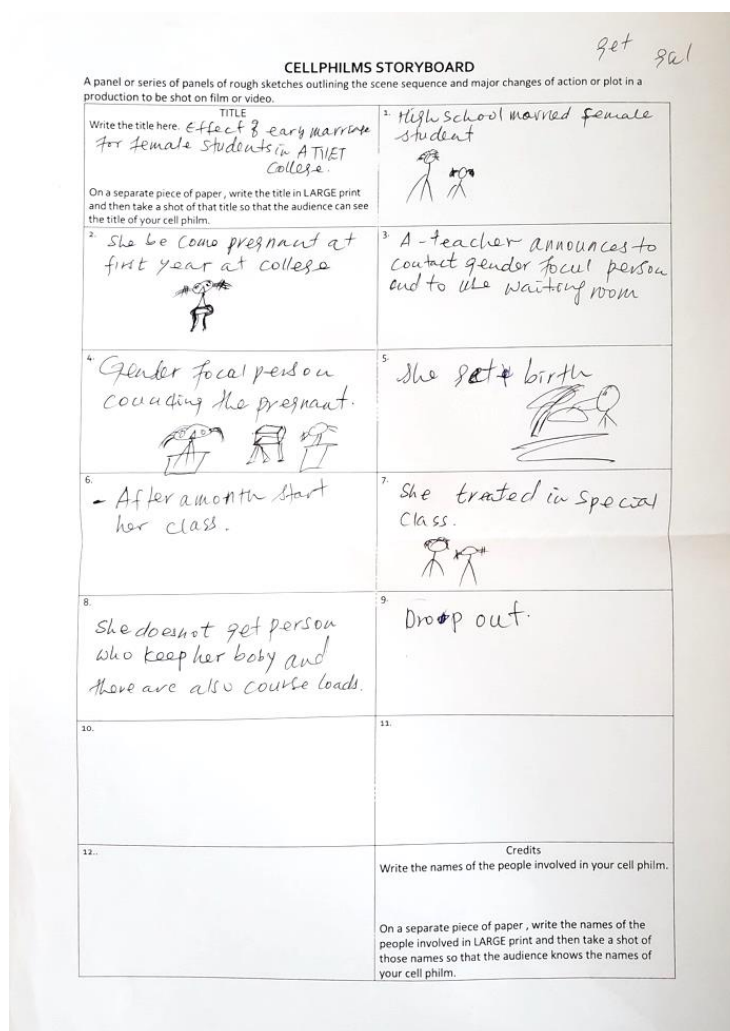 get gal
CELLPHILMS STORYBOARD
A panel or series of panels of rough sketches outlining the scene sequence and major changes of action or plot in a
production to be shot on film or video.
TITLE
Write the title here. Effect of early marriage
for female students in ATVET
College.
On a separate piece of paper , write the title in LARGE print
and then take a shot of that title so that the audience can see
the title of your cell philm.
1. High school married female
student
2. She be come pregnant at
first year at college
3. A-teacher announces to
contact gender focul person
and to use waiting room
4. Gender focal person
the pregnant.
5. She birth
6. - After a month start
her class.
7. She treated in special
class.
8. She doesnot get person
who keep her boby and
there are also course loads.
9. Droop out.
10.
11.
12..
Credits
Write the names of the people involved in your cell philm.
On a separate piece of paper , write the names of the
people involved in LARGE print and then take a shot of
those names so that the audience knows the names of
your cell philm.